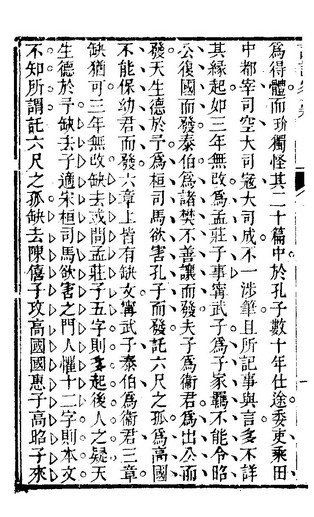 為得體而玠獨怪其二十篇中於孔子數十年仕途委吏乘田
中都宰司空大司寇大司成不一涉筆且所記事與言多不詳
其緣起如三年無改為孟莊子事甯武子為子家羈不能令昭
公復國而發泰伯為諸樊不善讓而發夫子為衛君為出公而
發天生德於予為桓司馬欲害孔子而發託六尺之孤為高國
不能保幼君而發六章上皆有缺文甯武子泰伯為衛君三章
缺猶可三年無改缺去或問孟莊子五字則多起後人之疑天
生德於予缺去子適宋桓司馬欲害之門人懼十二字則本文
不知所謂託六尺之孤缺去陳僖子攻高國國惠子高昭子來